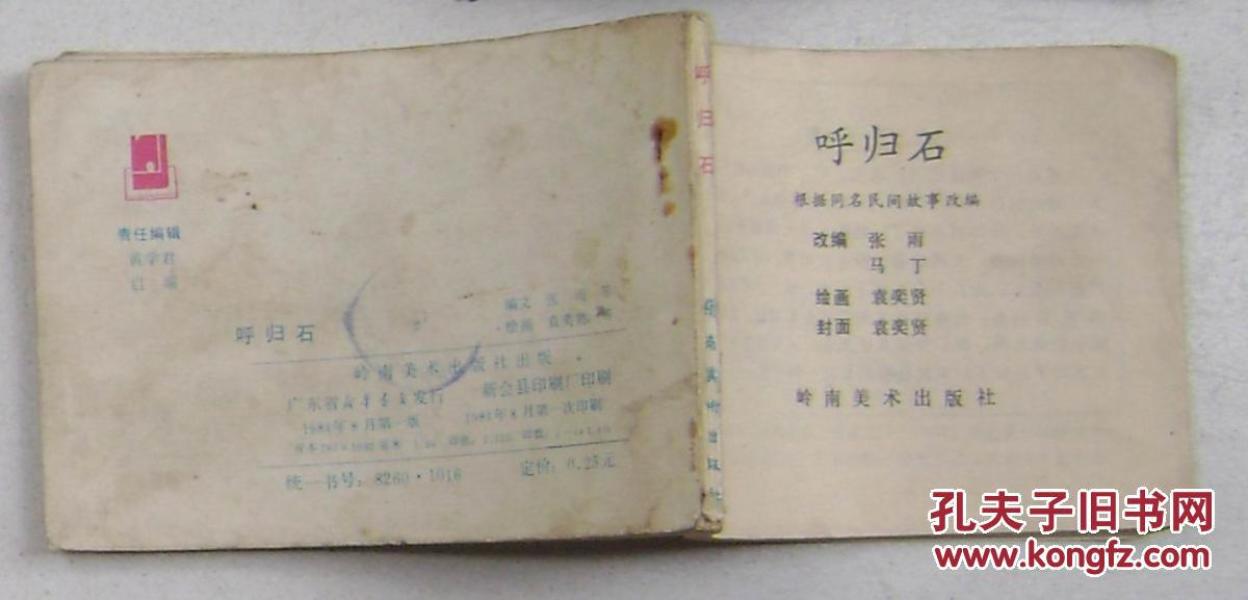 责任编辑
呼归石
岭南美术出版社出版
广东省新华书店发行 新会县印刷厂印刷
1984年8月第一版 1984年8月第一次印刷
统一书号：8260·1016 定价：0.25元
呼归石
岭南美术出版社
呼归石
根据同名民间故事改编
改编 张雨
马丁
绘画 袁奕贤
封面 袁奕贤
岭南美术出版社
孔夫子旧书网
www.kongfz.com